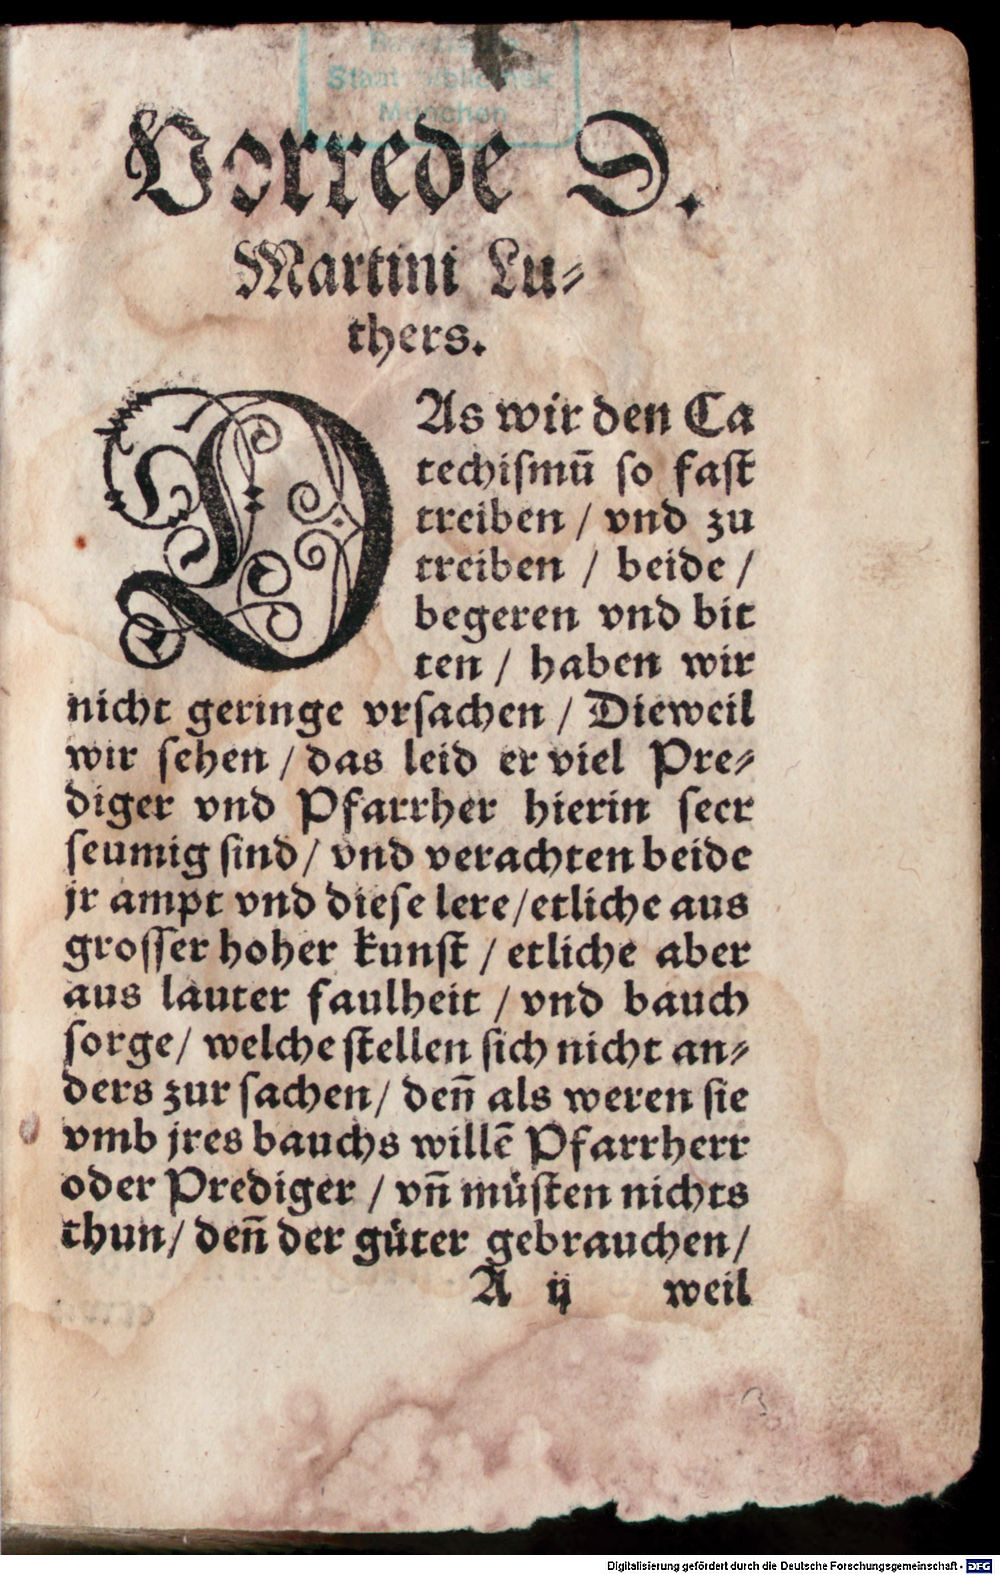 Bayerische
Staatsbibliothek
München
Vorrede D.
Martini Lu⸗
thers.
DAs wir den Ca
techiſmū ſo faſt
treiben / vnd zu
treiben / beide /
begeren vnd bit
ten / haben wir
nicht geringe vrſachen / Dieweil
wir ſehen / das leid er viel Pre⸗
diger vnd Pfarrher hierin ſeer
ſeumig ſind / vnd verachten beide
jr ampt vnd dieſe lere / etliche aus
groſſer hoher kunſt / etliche aber
aus lauter faulheit / vnd bauch
ſorge / welche ſtellen ſich nicht an⸗
ders zur ſachen / deñ als weren ſie
vmb jres bauchs willē Pfarrherr
oder Prediger / vñ müſten nichts
thun / deñ der güter gebrauchen /
A ij weil
3
Digitalisierung gefördert durch die Deutsche Forschungsgemeinschaft - DFG